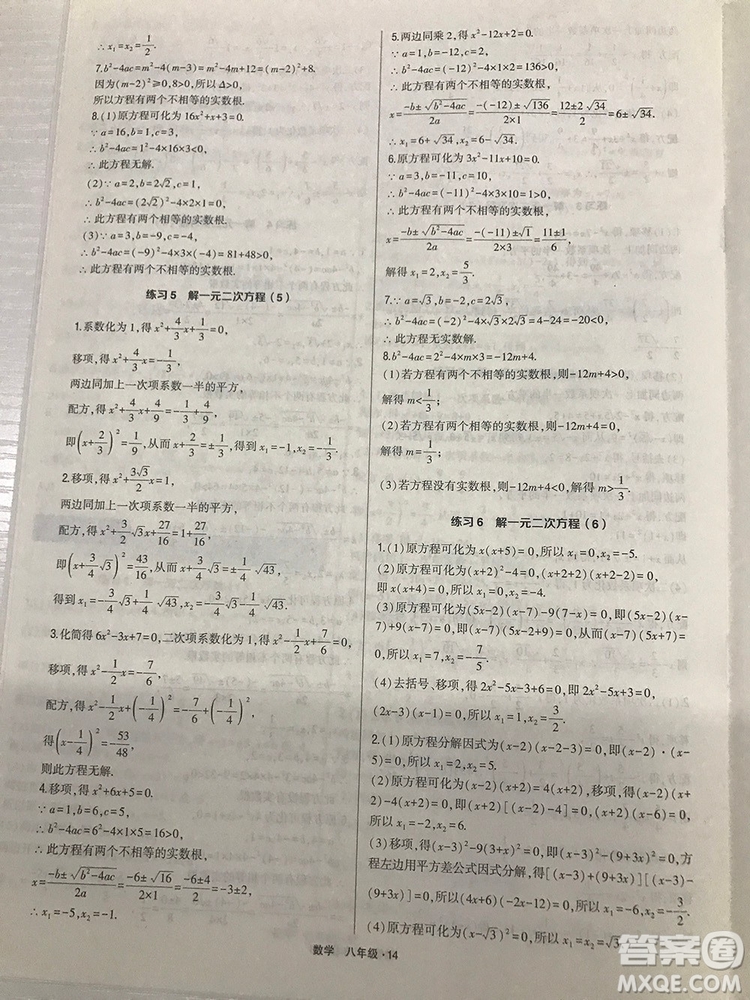 ∴ x₁=x₂=1/2.
7.b²-4ac=m²-4(m-3)=m²-4m+12=(m-2)²+8.
因为(m-2)²≥0,8>0,所以Δ>0.
所以方程有两个不相等的实数根.
8.(1)原方程可化为16x²+x+3=0.
∵ a=16,b=1,c=3,
∴ b²-4ac=1²-4×16×3=-191<0.
∴ 此方程无解.
(2)∵ a=2,b=2√2,c=1,
∴ b²-4ac=(2√2)²-4×2×1=0.
∴ 此方程有两个相等的实数根.
(3)∵ a=3,b=-9,c=-4,
∴ b²-4ac=(-9)²-4×3×(-4)=81+48>0.
∴ 此方程有两个不相等的实数根.
练习5 解一元二次方程(5)
1.系数化为1,得x²+4/3x+1/3=0,
移项,得x²+4/3x=-1/3,
两边同加上一次项系数一半的平方,
配方,得x²+4/3x+4/9=-1/3+4/9,
即(x+2/3)²=1/9,从而x+2/3=±1/3,得到x₁=-1,x₂=-1/3.
2.移项,得x²+3√3/2x=1,
两边同加上一次项系数一半的平方,
配方,得x²+3/2√3x+27/16=1+27/16,
即(x+3/4√3)²=43/16,从而x+3/4√3=±1/4√43,
得到x₁=-3/4√3+1/4√43,x₂=-3/4√3-1/4√43.
3.化简得6x²-3x+7=0,二次项系数化为1,得x²-1/2x+7/6=0,
移项,得x²-1/2x=-7/6,
配方,得x²-1/2x+(-1/4)²=-7/6+(-1/4)²,
得(x-1/4)²=-53/48,
则此方程无解.
4.移项,得x²+6x+5=0.
∵ a=1,b=6,c=5,
∴ b²-4ac=6²-4×1×5=16>0,
∴ 此方程有两个不相等的实数根,
x=(-b±√b²-4ac)/2a=(-6±√16)/2×1=(-6±4)/2=-3±2,
∴ x₁=-5,x₂=-1.
5.两边同乘2,得x²-12x+2=0.
∵ a=1,b=-12,c=2,
∴ b²-4ac=(-12)²-4×1×2=136>0,
∴ 此方程有两个不相等的实数根,
x=(-b±√b²-4ac)/2a=(-(-12)±√136)/2×1=(12±2√34)/2=6±√34,
∴ x₁=6+√34,x₂=6-√34.
6.原方程可化为3x²-11x+10=0.
∵ a=3,b=-11,c=10,
∴ b²-4ac=(-11)²-4×3×10=1>0,
∴ 此方程有两个不相等的实数根,
x=(-b±√b²-4ac)/2a=(-(-11)±√1)/2×3=(11±1)/6,
解得x₁=2,x₂=5/3.
7.∵ a=√3,b=-2,c=2√3,
∴ b²-4ac=(-2)²-4×√3×2√3=4-24=-20<0,
∴ 此方程无实数解.
8.b²-4ac=2²-4×m×3=-12m+4.
(1)若方程有两个不相等的实数根,则-12m+4>0,
解得m<1/3;
(2)若方程有两个相等的实数根,则-12m+4=0,
解得m=1/3;
(3)若方程没有实数根,则-12m+4<0,解得m>1/3.
练习6 解一元二次方程(6)
1.(1)原方程可化为x(x+5)=0,所以x₁=0,x₂=-5.
(2)原方程可化为(x+2)²-4=0,(x+2+2)(x+2-2)=0,
即x(x+4)=0,所以x₁=0,x₂=-4.
(3)原方程可化为(5x-2)(x-7)-9(7-x)=0,即(5x-2)(x-
7)+9(x-7)=0,即(x-7)(5x-2+9)=0,从而(x-7)(5x+7)
=0,所以x₁=7,x₂=-7/5.
(4)去括号、移项,得2x²-2x-3x+3=0,即2x²-5x+3=0,
(2x-3)(x-1)=0,所以x₁=1,x₂=3/2.
2.(1)原方程分解因式为(x-2)(x-2-3)=0,即(x-2)·(x-
5)=0,所以x₁=2,x₂=5.
(2)原方程可化为(x-2)²-4(x-2)=0,即(x-2)[(x-2)-4]
=0,所以x₁=2,x₂=6.
(3)原方程可化为(x-3)²-[3(3+x)]²=0,即(x-3)²-(9+3x)²=0,方
程左边用平方差公式因式分解,得[(x-3)+(9+3x)][(x-3)-
(9+3x)]=0,所以(4x+6)(-2x-12)=0,所以x₁=-6,x₂=-3/2.
(4)原方程可化为(x-√3)²=0,所以x₁=x₂=√3.
数学 八年级·14
答案圈
MXQE.COM